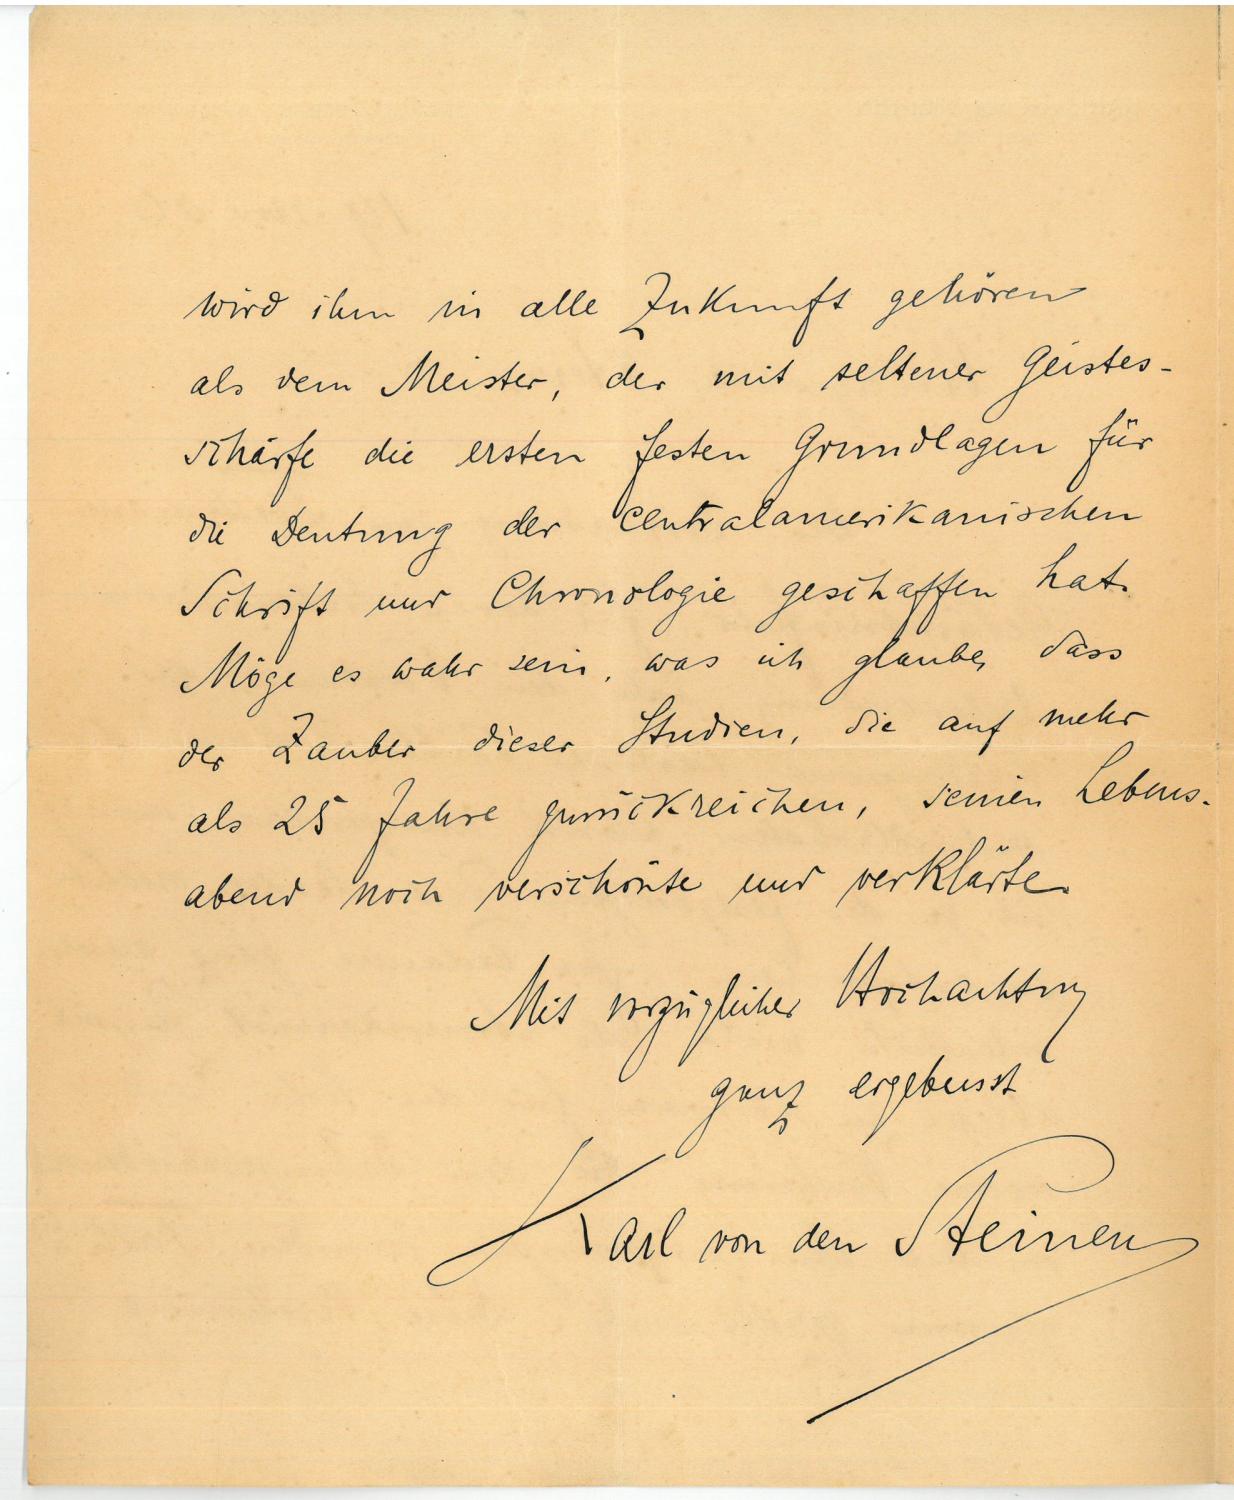 wird ihm in alle Zukunft gehören
als dem Meister, der mit seltener Geistes-
schärfe die ersten festen Grundlagen für
die Deutung der centralamerikanischen
Schrift und Chronologie geschaffen hat.
Möge es wahr sein, was ich glaube, dass
der Zauber dieser Studien, die auf mehr
als 25 Jahre zurückreichen, seinen Lebens-
abend noch verschönte und verklärte.
Mit vorzüglicher Hochachtung
ganz ergebenst
Karl von den Steinen